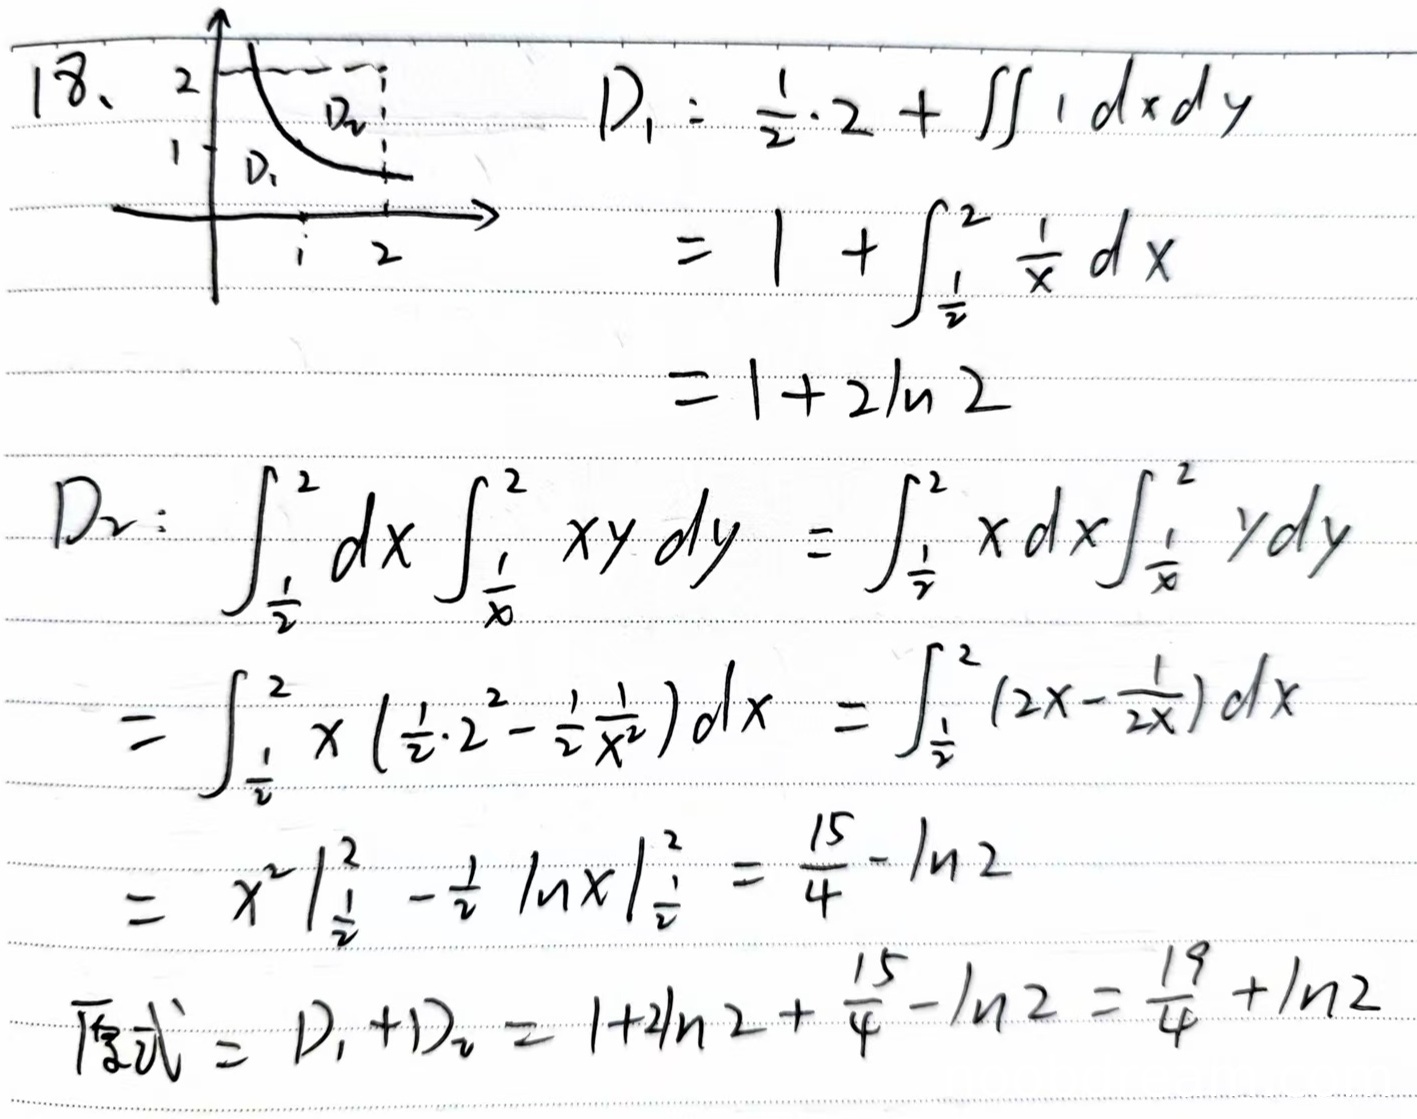 18、 2 1 D₁ D₂ 1 2
D₁: 1/2·2 + ∬ 1 dxdy
= 1 + ∫_{1/2}^{2} 1/x dx
= 1+2ln2
D₂: ∫_{1/2}^{2} dx ∫_{1/x}^{2} xy dy = ∫_{1/2}^{2} x dx ∫_{1/x}^{2} y dy
= ∫_{1/2}^{2} x (1/2·2² - 1/2 1/x²) dx = ∫_{1/2}^{2} (2x - 1/2x) dx
= x² |_{1/2}^{2} - 1/2 lnx |_{1/2}^{2} = 15/4 - ln2
原式 = D₁+D₂ = 1+2ln2 + 15/4 - ln2 = 19/4 + ln2